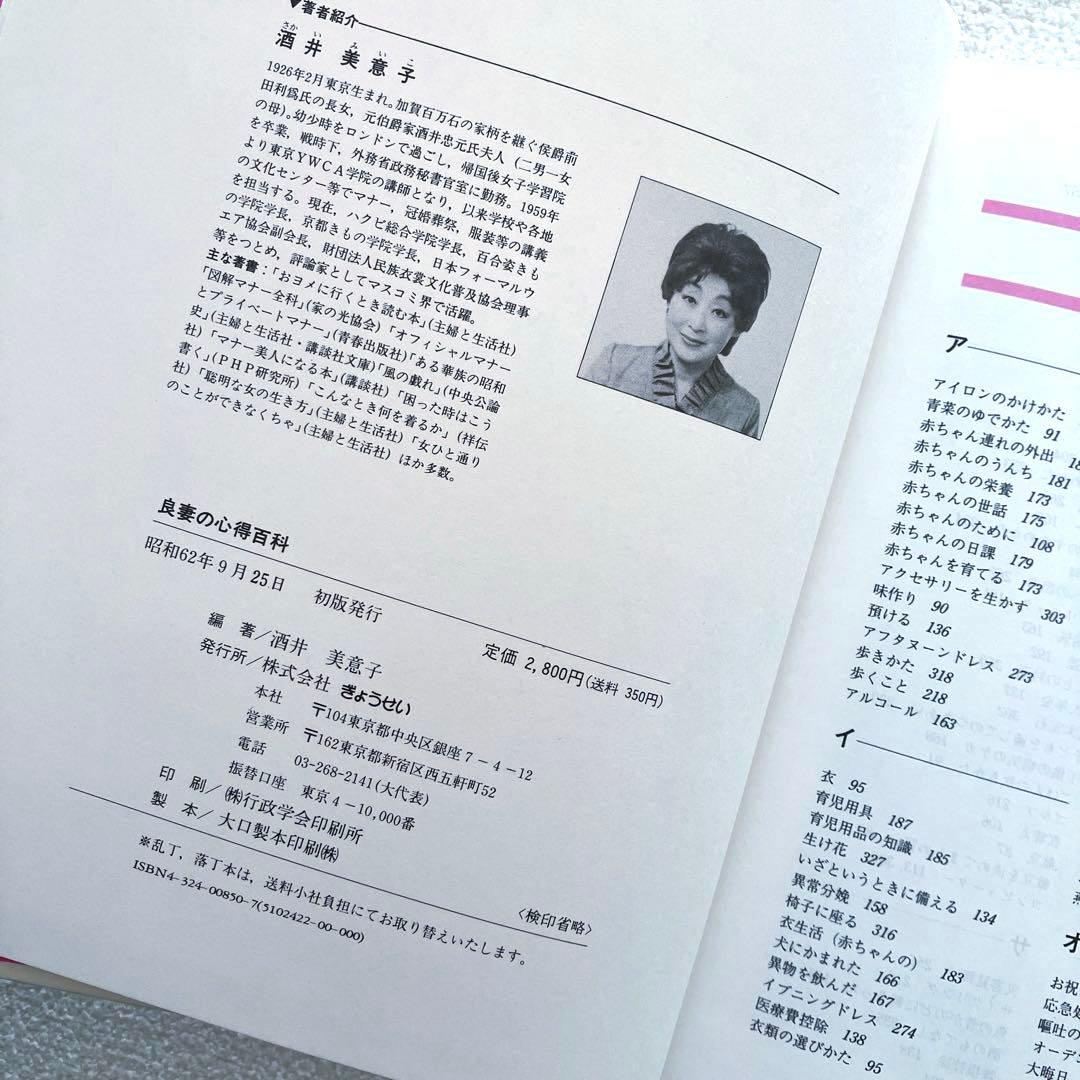 ▼著者紹介
さかい みいこ
酒井 美意子
1926年2月東京生まれ。加賀百万石の家柄を継ぐ侯爵前
田利爲氏の長女，元伯爵家酒井忠元氏夫人（二男一女
の母）。幼少時をロンドンで過ごし，帰国後女子学習院
を卒業，戦時下，外務省政務秘書官室に勤務。1959年
より東京YWCA学院の講師となり，以来学校や各地
の文化センター等でマナー，冠婚葬祭，服装等の講義
を担当する。現在，ハクビ総合学院学長，百合姿きも
の学院学長，京都きもの学院学長，日本フォーマルウ
エア協会副会長，財団法人民族衣裳文化普及協会理事
等をつとめ，評論家としてマスコミ界で活躍。
主な著書：「おヨメに行くとき読む本」(主婦と生活社)
「図解マナー全科」(家の光協会)「オフィシャルマナー
とプライベートマナー」(青春出版社)「ある華族の昭和
史」(主婦と生活社・講談社文庫)「風の戯れ」(中央公論
社)「マナー美人になる本」(講談社)「困った時はこう
書く」(PHP研究所)「こんなとき何を着るか」(祥伝
社)「聡明な女の生き方」(主婦と生活社)「女ひと通り
のことができなくちゃ」(主婦と生活社) ほか多数。
良妻の心得百科
昭和62年9月25日 初版発行
定価 2,800円(送料 350円)
編著／酒井 美意子
発行所／株式会社 ぎょうせい
本社 〒104東京都中央区銀座7-4-12
営業所 〒162東京都新宿区西五軒町52
電話 03-268-2141(大代表)
振替口座 東京4-10,000番
印刷／㈱行政学会印刷所
製本／大口製本印刷㈱
〈検印省略〉
※乱丁，落丁本は，送料小社負担にてお取り替えいたします。
ISBN4-324-00850-7(5102422-00-000)
ア
アイロンのかけかた
青菜のゆでかた 91
赤ちゃん連れの外出
赤ちゃんのうんち 181
赤ちゃんの栄養 173
赤ちゃんの世話 175
赤ちゃんのために 108
赤ちゃんの日課 179
赤ちゃんを育てる 173
アクセサリーを生かす 303
味作り 90
預ける 136
アフタヌーンドレス 273
歩きかた 318
歩くこと 218
アルコール 163
イ
衣 95
育児用具 187
育児用品の知識 185
生け花 327
いざというときに備える 134
異常分娩 158
椅子に座る 316
衣生活（赤ちゃんの） 183
犬にかまれた 166
異物を飲んだ 167
イブニングドレス 274
医療費控除 138
衣類の選びかた 95
オ
お祝
応急処
嘔吐の
オーデ
大晦日